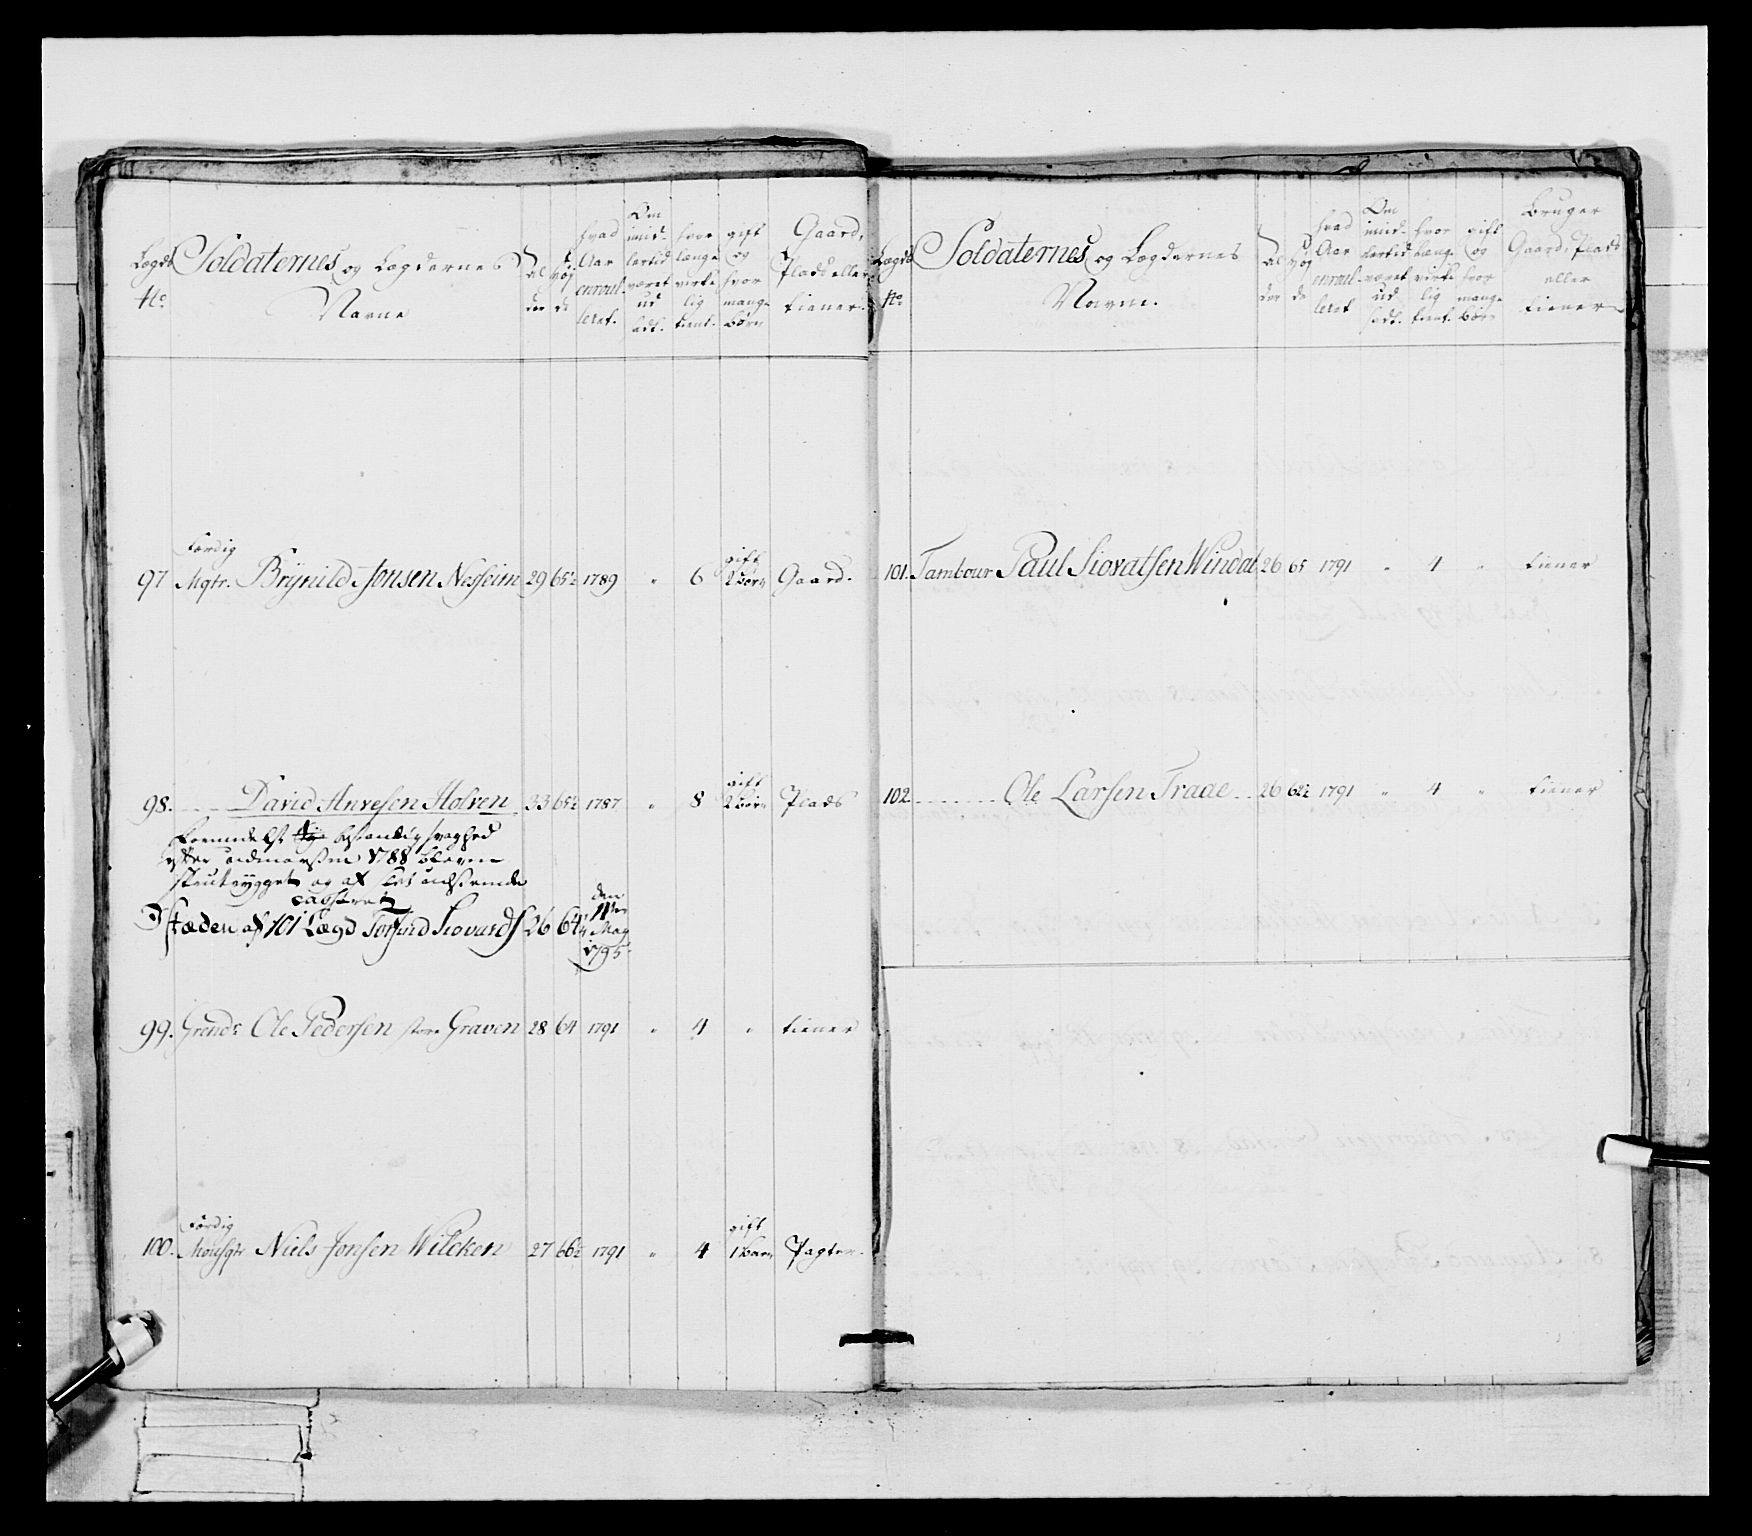 Lægds No
Soldaternes og Lægdernes Navne
Alder
Højde
hvad Aar enroulleret.
Om imidlertid været udsadt.
hvor længe virkelig tient.
gift og hvor mange børn
Gaard, Plads eller tiener.
97 Færdig Mqtr. Brÿnild Jonsen Nesheim 29 65½ 1789 " 6 gift 2 børn Gaard.
98. David Anvesen Holven 33 65½ 1787 " 8 gift 2 børn Plads
formedelst bestandig svaghed
efter udmarchen 1788 bleven
og af
casseret
I stæden af 101 Lægd Torfind Siovards 26 64 den 11ter May 1795
99. Grend: Ole Pedersen store Graven 28 64 1791 " 4 " tiener
100. Færdig Mousqtr Niels Jonsen Wilcken 27 66½ 1791 " 4 gift 1 barn Pagter.
Lægds No
Soldaternes og Lægdernes Navne.
Alder
Højde
hvad Aar enroulleret
Om imidlertid været udsadt.
hvor længe virkelig tient.
gift og hvor mange børn
Bruger Gaard, Plads eller tiener
101. Tambour Paul Siovatsen Windal 26 65 1791 " 4 " tiener
102 Ole Larsen Traae 26 62½ 1791 " 4 " tiener